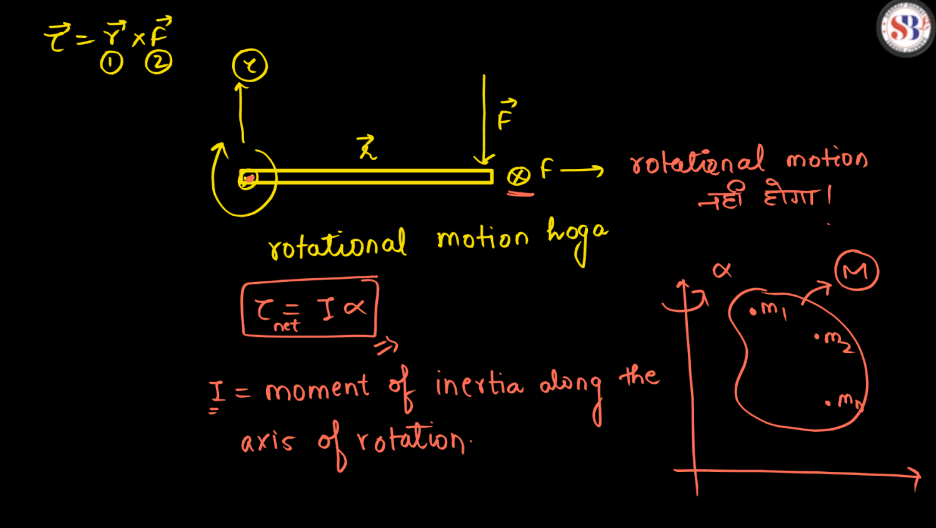 τ⃗ = r⃗ × F⃗
① ②
τ
F⃗
r⃗
⊗ F → rotational motion
नही होगा।
rotational motion hoga
τnet = I α
⇒
I = moment of inertia along the
axis of rotation.
α
M
m₁
m₂
mₙ
SB